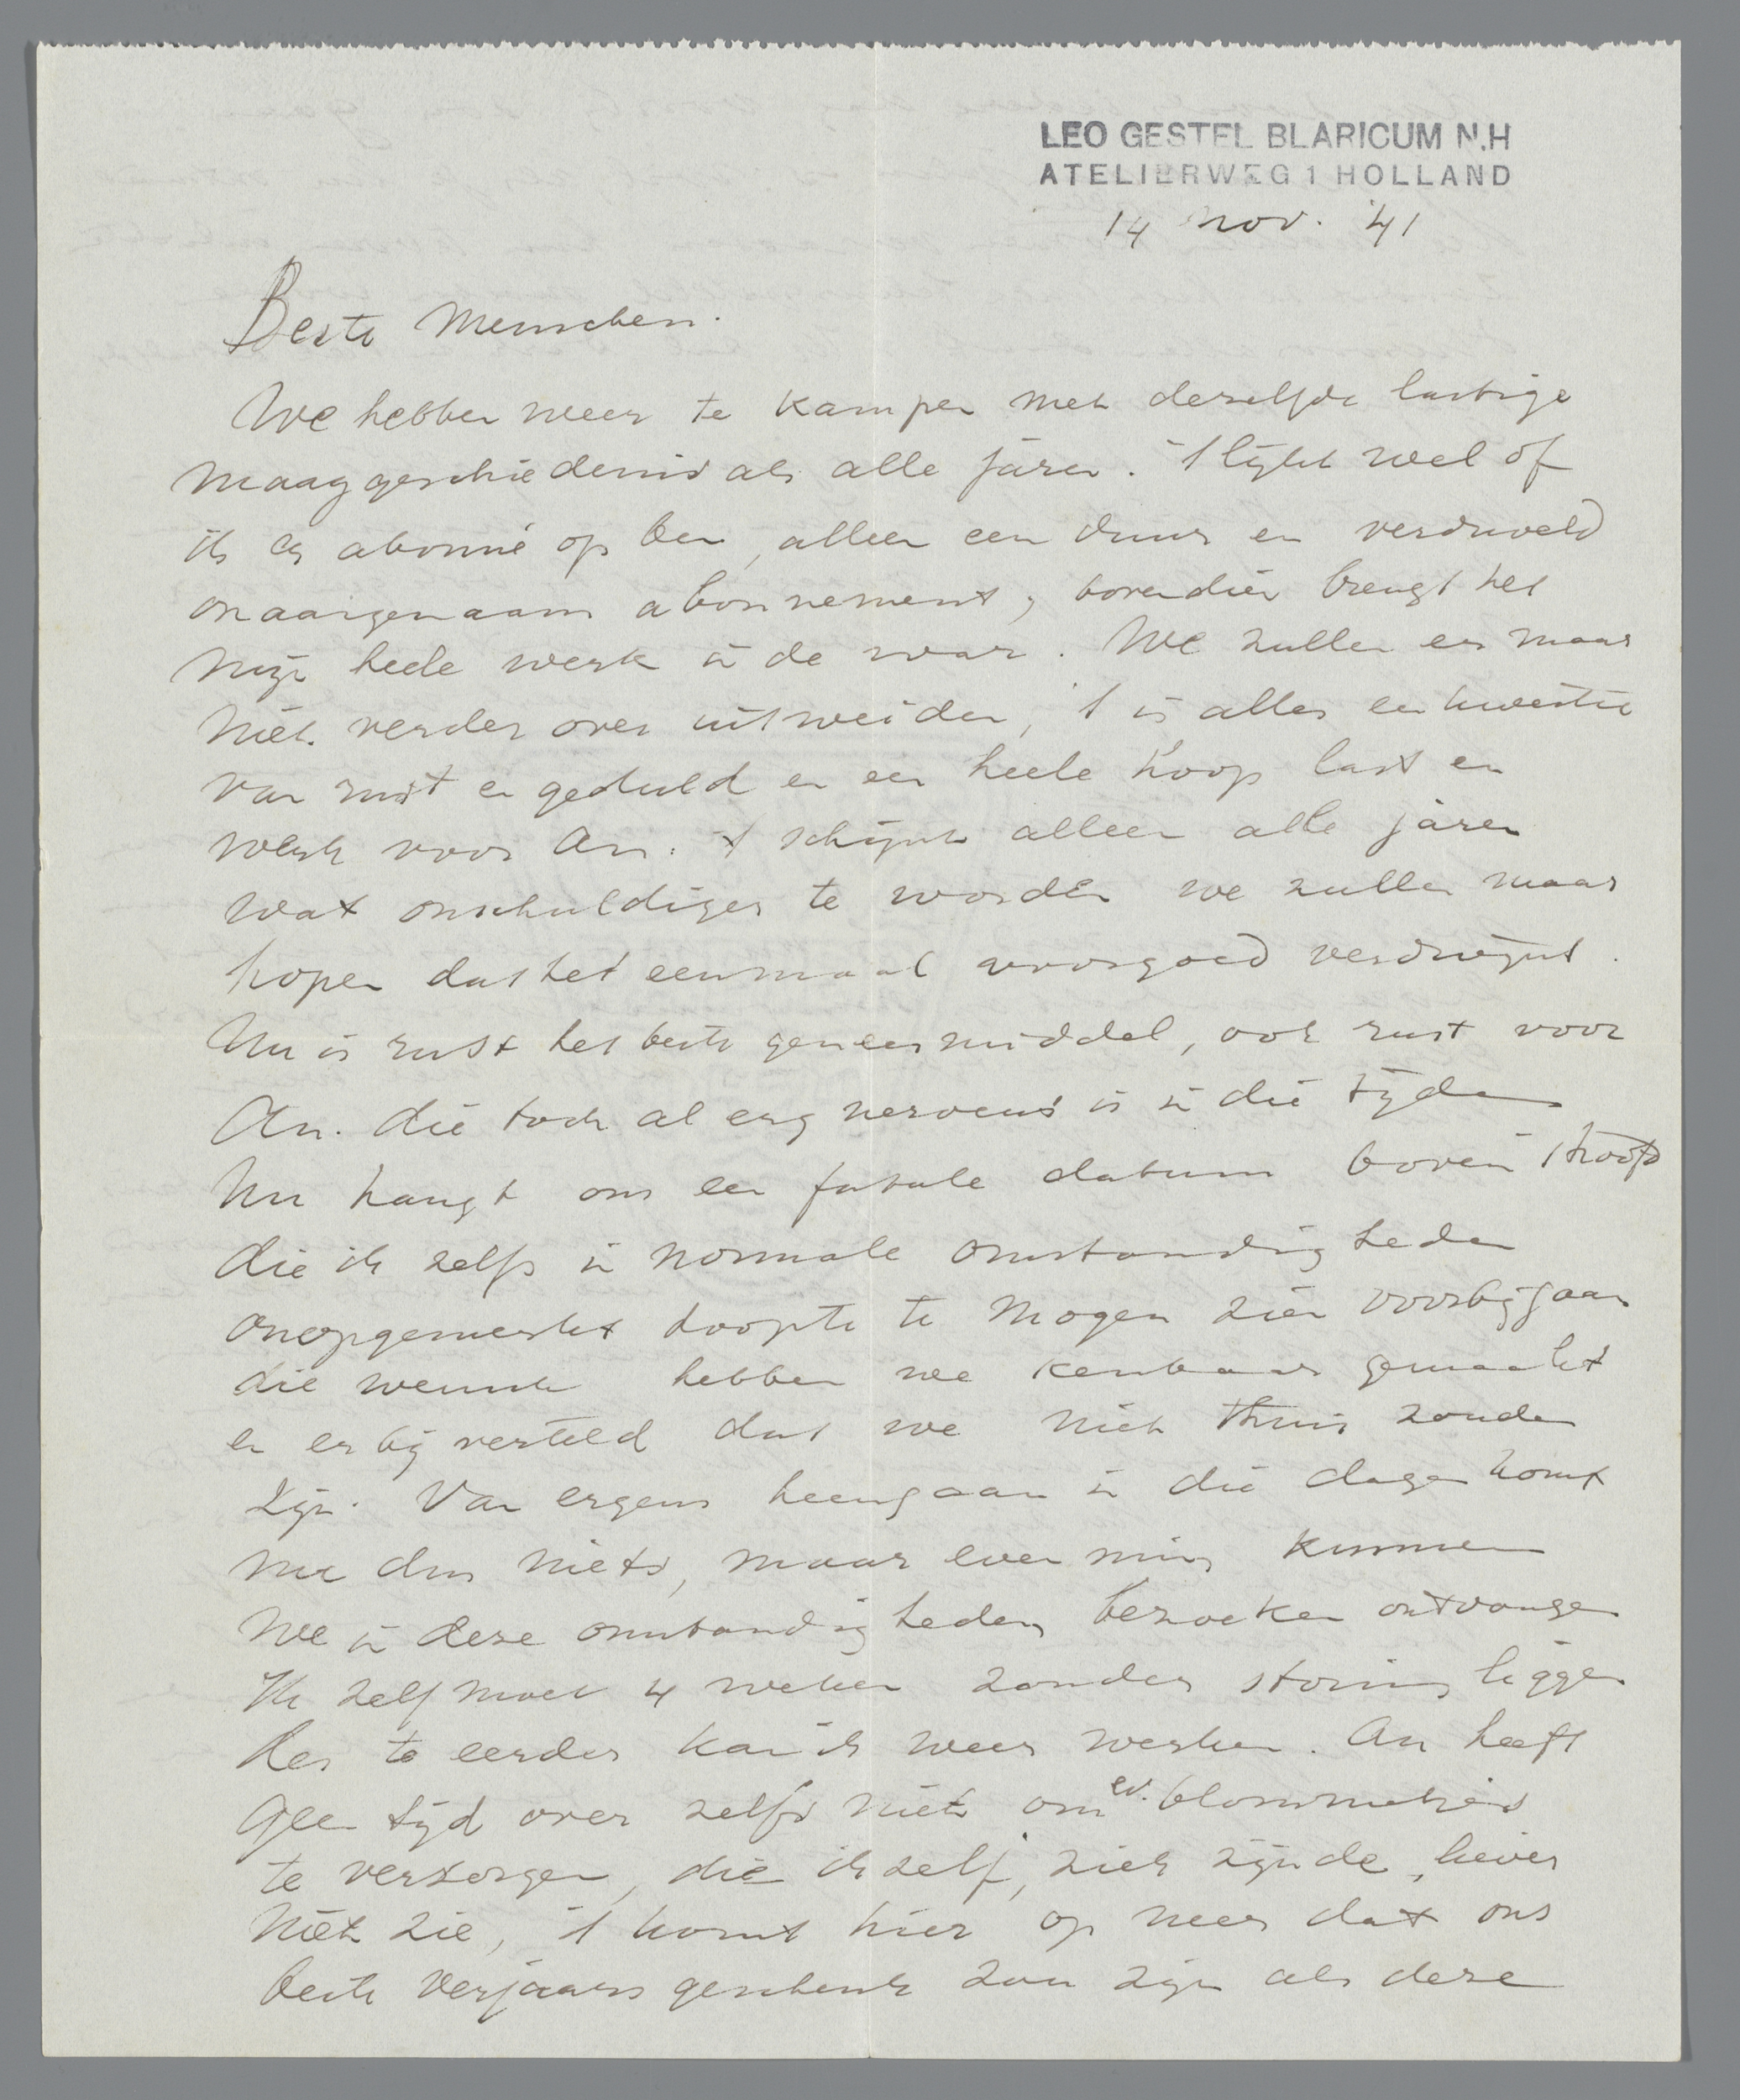 LEO GESTEL BLARICUM N.H
ATELIERWEG 1 HOLLAND
14 nov. '41
Beste Menschen.
We hebben weer te kampen met dezelfde lastige
maaggeschiedenis als alle jaren. 't lijkt wel of
ik er abonné op ben, alleen een duur en verduveld
onaangenaam abonnement, bovendien brengt het
mijn heele werk in de war. We zullen er maar
niet verder over uitweiden, 't is alles een kwestie
van rust en geduld en een heele hoop last en
werk voor An. 't schijnt alleen alle jaren
wat onschuldiger te worden we zullen maar
hopen dat het eenmaal voorgoed verdwijnt.
Nu is rust het beste geneesmiddel, ook rust voor
An. die toch al erg nerveus is in die tijden
Nu hangt ons een fatale datum boven 't hoofd
die ik zelfs in normale omstandigheden
onopgemerkt hoopte te mogen zien voorbijgaan
die wensch hebben we kenbaar gemaakt
en erbij verteld dat we niet thuis zouden
zijn. Van ergens heengaan in die dagen komt
nu dus niets, maar even min kunnen
we in deze omstandigheden bezoeken ontvangen
Ik zelf moet 4 weken zonder storing liggen
des te eerder kan ik weer werken. An heeft
geen tijd over zelfs niet om ev. blommetjes
te verzorgen, die ik zelf, ziek zijnde, liever
niet zie, 't komt hier op neer dat ons
beste verjaars geschenk zou zijn als deze